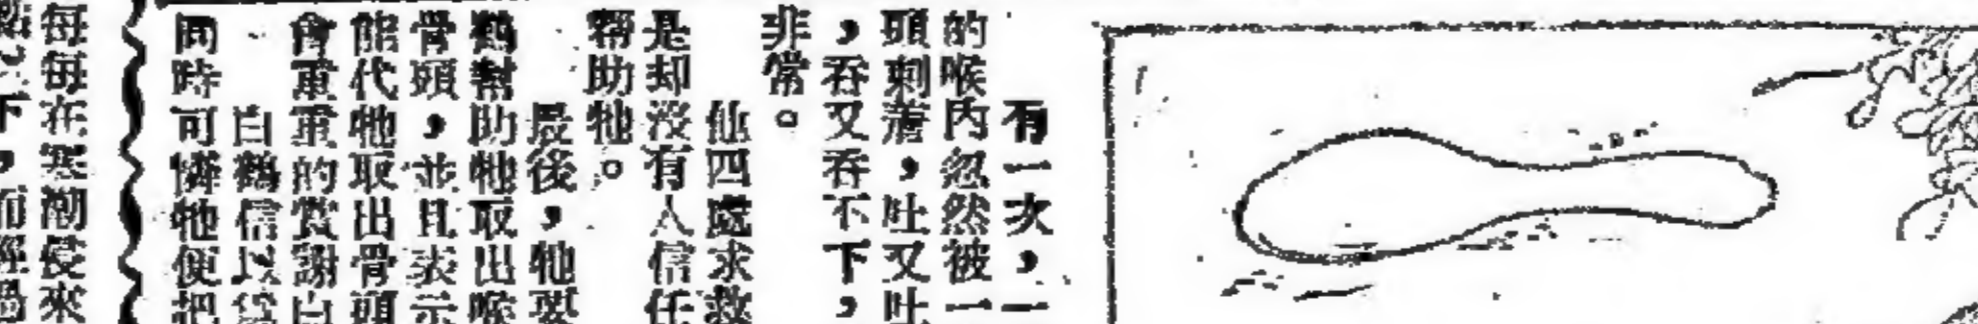 有一次，一
的喉內忽然被一
頭刺着，吐又吐
，吞又吞不下，
非常。
仙四處求救
是却沒有人信任
幫助牠。
最後，牠要
鶴幫助牠取出喉
骨頭，並且表示
能代牠取出骨頭
會重重的賞謝白
白鶴信以爲
同時可憐牠便把
每每在寒潮侵來
下，而經過